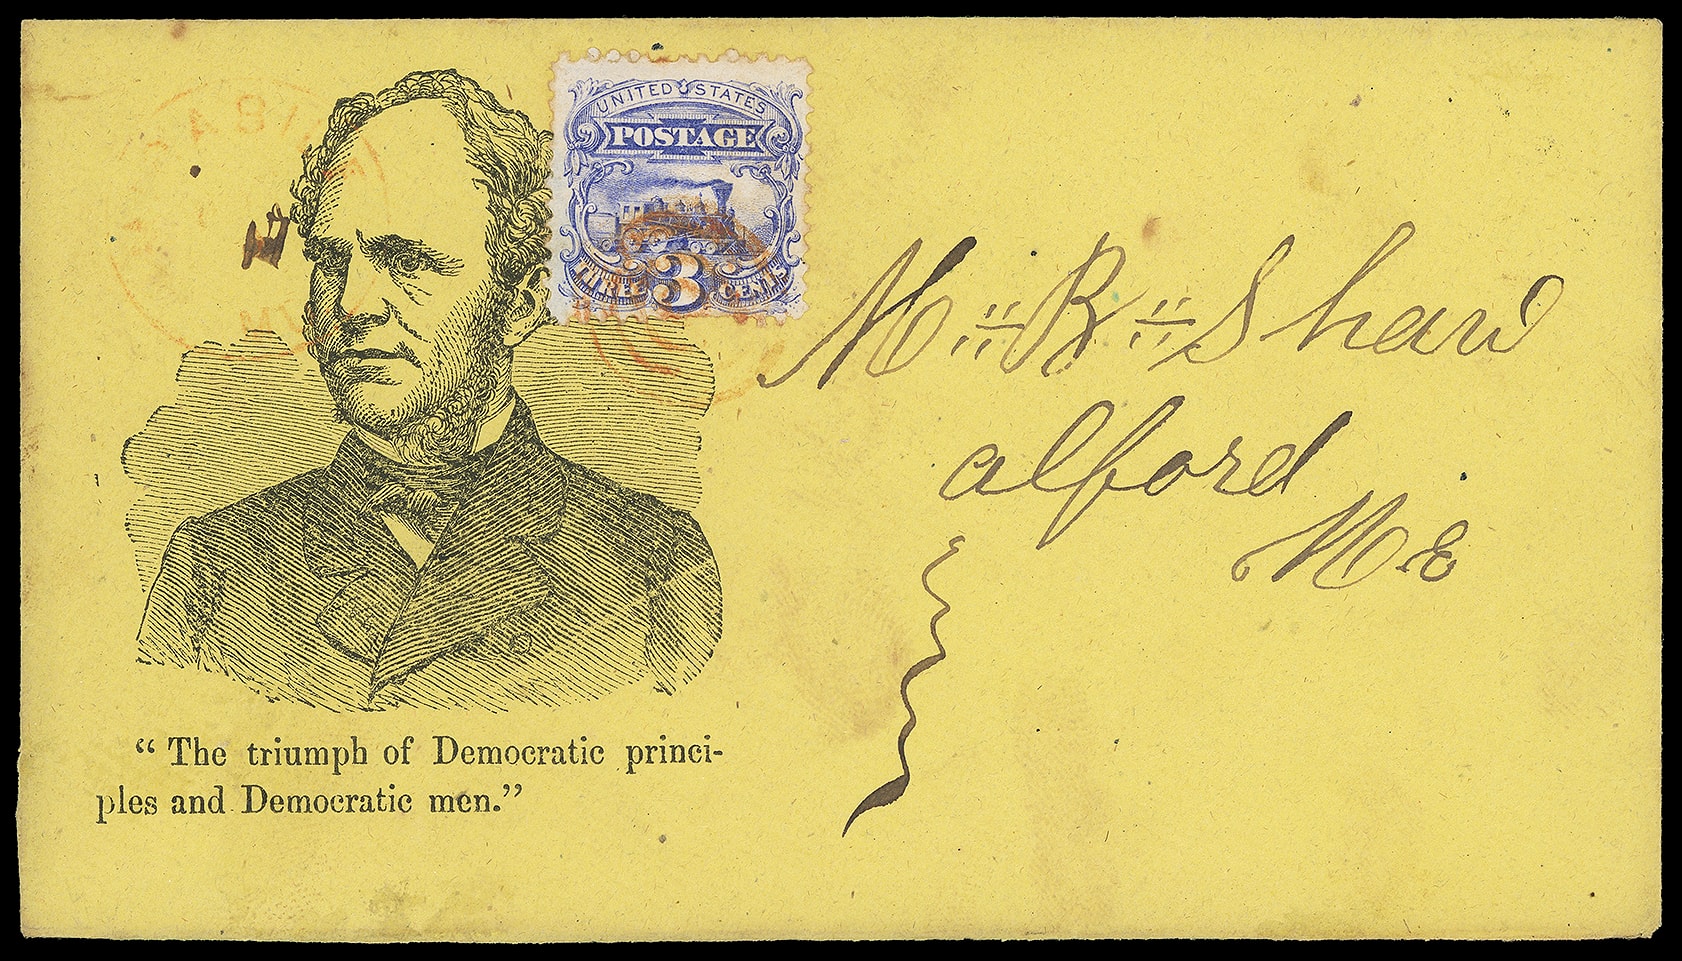 UNITED STATES
POSTAGE
THREE 3 CENTS
M R Shaw
alford
M.E
"The triumph of Democratic princi-
ples and Democratic men."